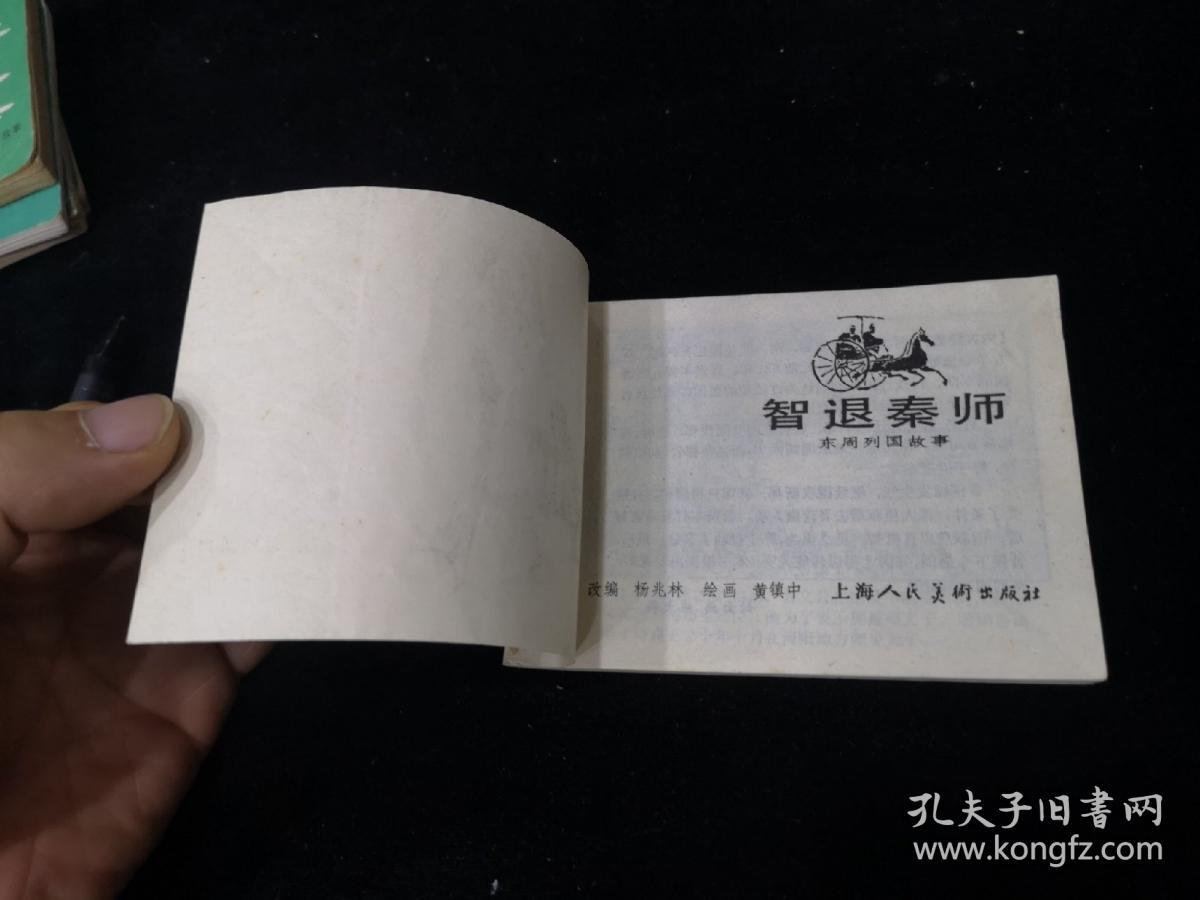 故事
智退秦师
东周列国故事
改编 杨兆林 绘画 黄镇中 上海人民美術出版社
孔夫子旧书网
www.kongfz.com